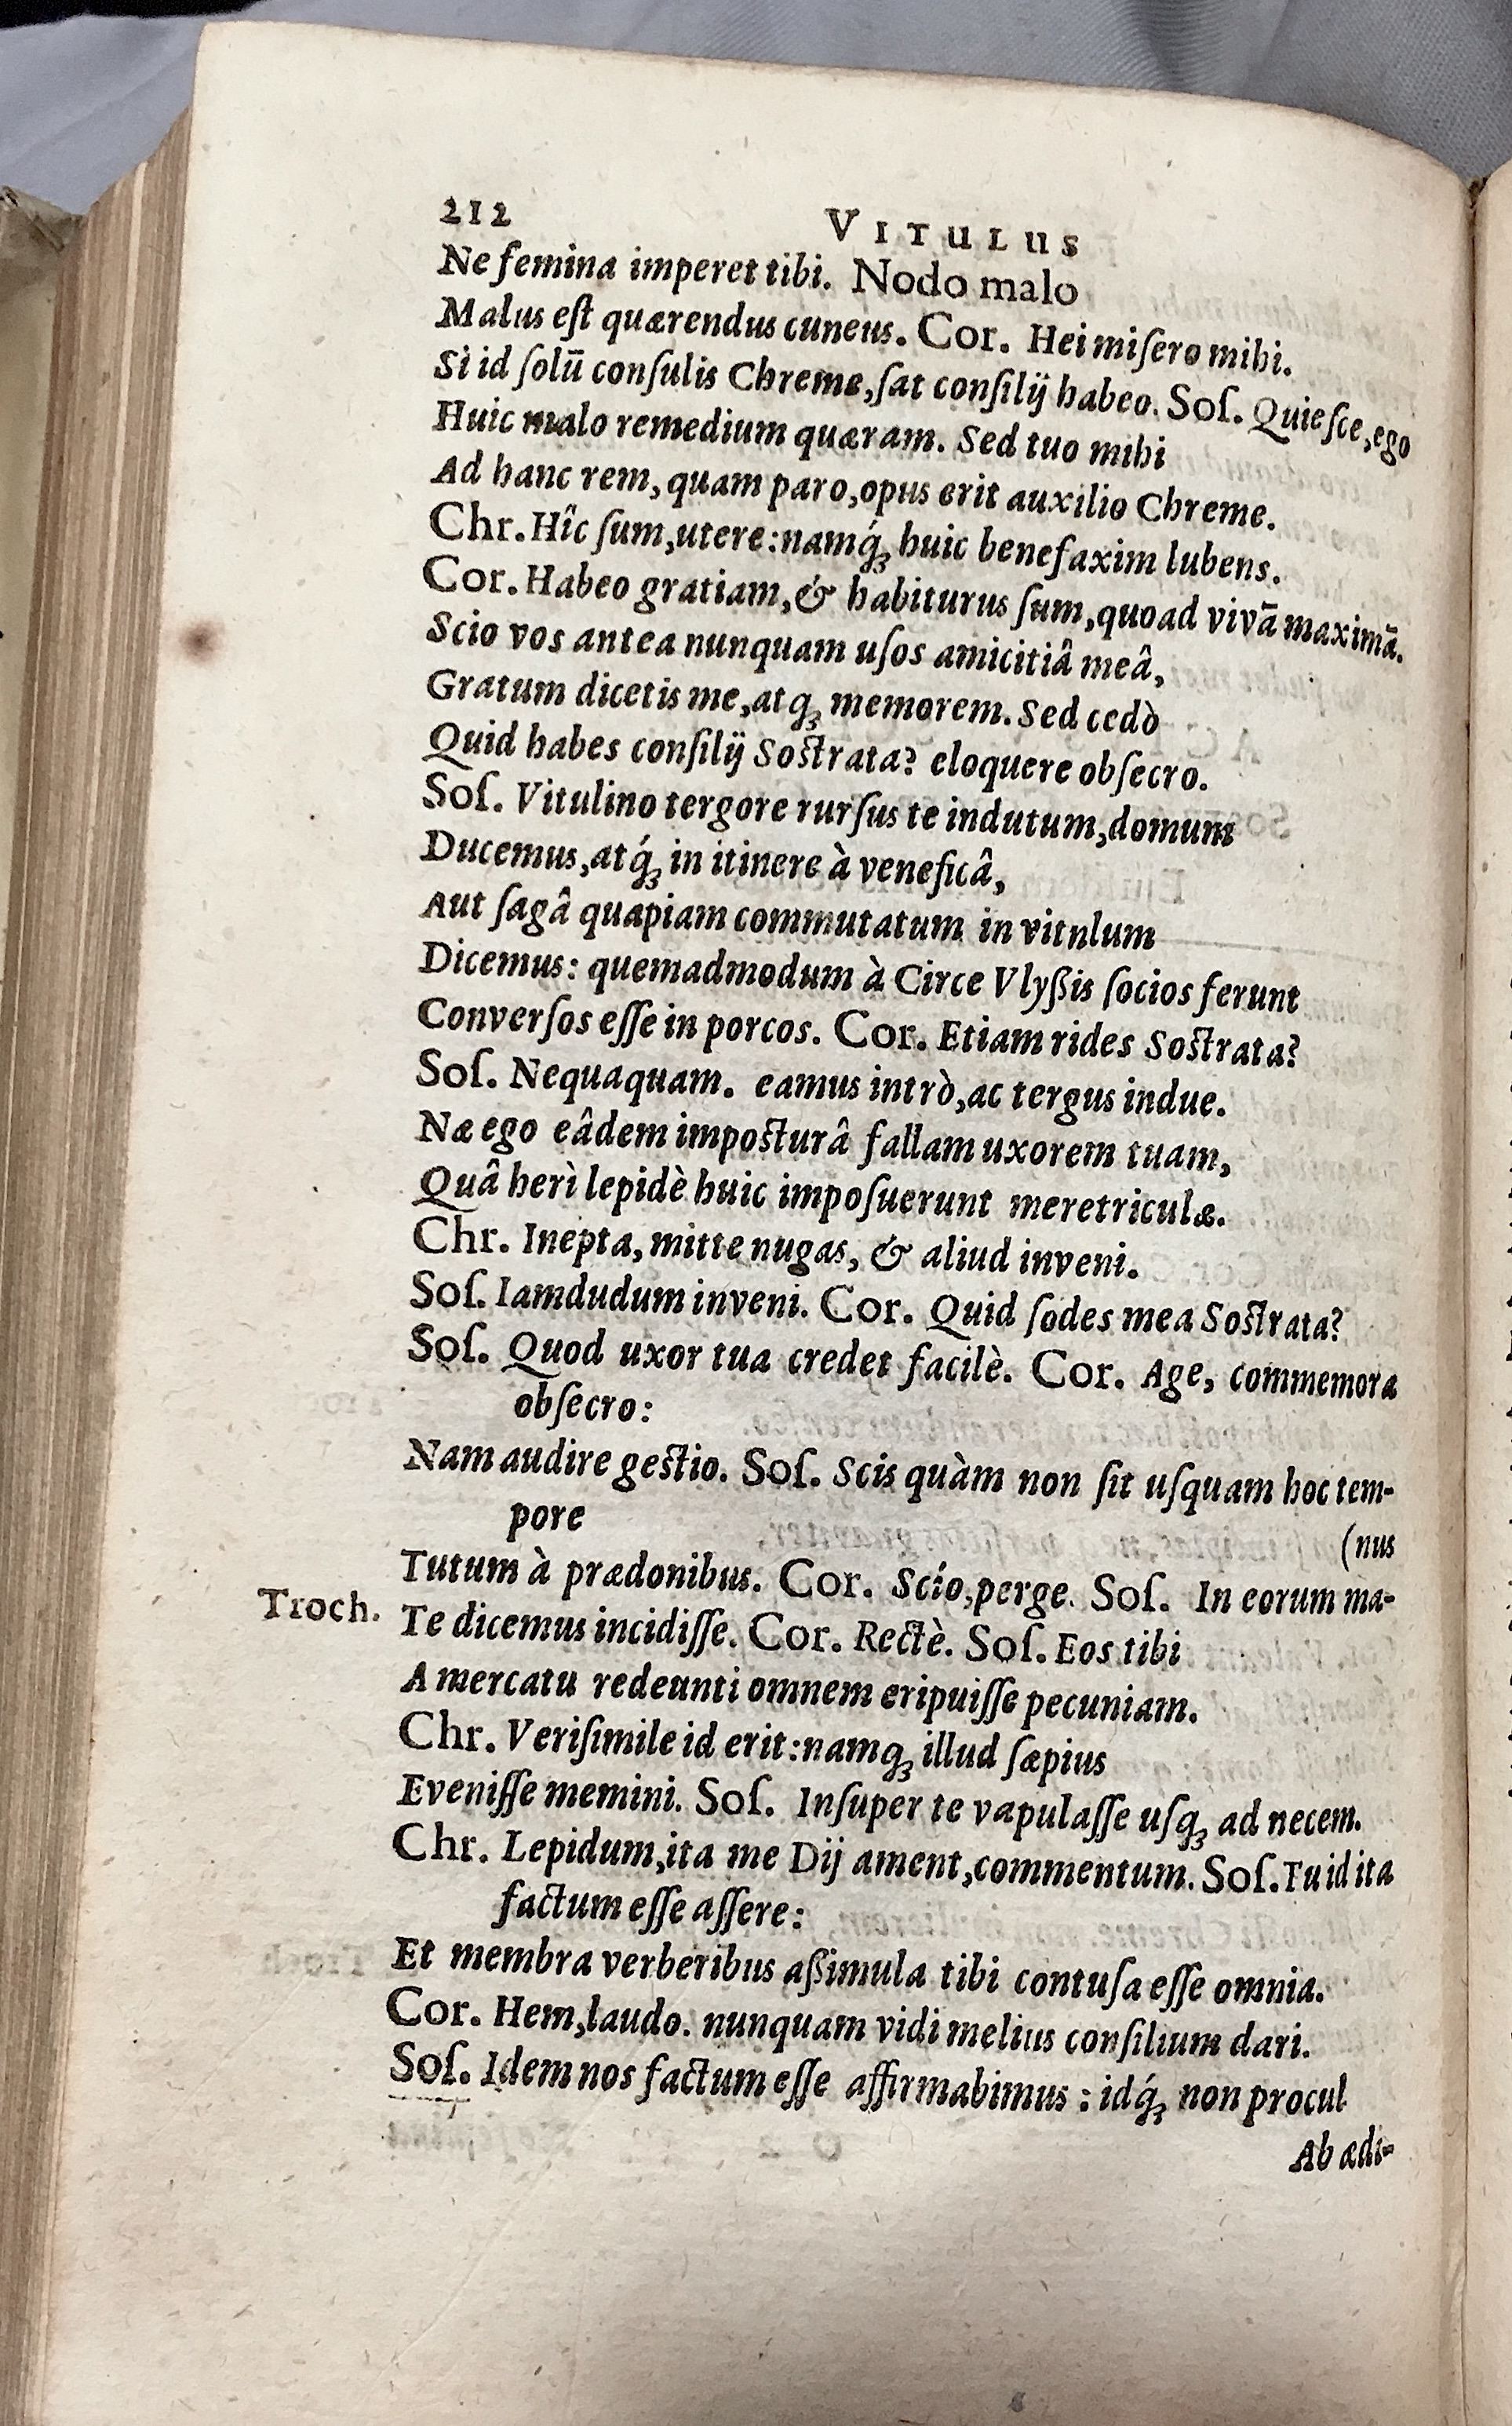 212 VITULUS
Ne femina imperet tibi. Nodo malo
Malus eſt quærendus cuneus. Cor. Hei miſero mihi.
Si id ſolū conſulis Chreme,ſat conſilij habeo. Soſ. Quieſce,ego
Huic malo remedium quæram. Sed tuo mihi
Ad hanc rem,quam paro,opus erit auxilio Chreme.
Chr. Hîc ſum,utere:namq́ꝫ huic benefaxim lubens.
Cor. Habeo gratiam,& habiturus ſum,quoad vivā maximā.
Scio vos antea nunquam uſos amicitiâ meâ,
Gratum dicetis me,atqꝫ memorem. Sed cedò
Quid habes conſilij Soſtrata? eloquere obſecro.
Soſ. Vitulino tergore rurſus te indutum,domum
Ducemus,atq́ꝫ in itinere à veneficâ,
Aut ſagâ quapiam commutatum in vitnlum
Dicemus: quemadmodum à Circe Vlyßis ſocios ferunt
Converſos eſſe in porcos. Cor. Etiam rides Soſtrata?
Soſ. Nequaquam. eamus intrò,ac tergus indue.
Næ ego eâdem impoſturâ fallam uxorem tuam,
Quâ herì lepidè huic impoſuerunt meretriculæ.
Chr. Inepta, mitte nugas, & aliud inveni.
Soſ. Iamdudum inveni. Cor. Quid ſodes mea Soſtrata?
Soſ. Quod uxor tua credet facilè. Cor. Age, commemora
obſecro:
Nam audire geſtio. Soſ. Scis quàm non ſit uſquam hoc tem-
pore (nus
Tutum à prædonibus. Cor. Scío,perge. Soſ. In eorum ma-
Troch. Te dicemus incidiſſe. Cor. Rectè. Soſ. Eos tibi
A mercatu redeunti omnem eripuiſſe pecuniam.
Chr. Veriſimile id erit:namqꝫ illud ſæpius
Eveniſſe memini. Soſ. Inſuper te vapulaſſe uſqꝫ ad necem.
Chr. Lepidum,ita me Dij ament,commentum. Soſ. Tu id ita
factum eſſe aſſere:
Et membra verberibus aßimula tibi contuſa eſſe omnia.
Cor. Hem,laudo. nunquam vidi melius conſilium dari.
Soſ. Idem nos factum eſſe affirmabimus : idq́ꝫ non procul
Ab ædi-